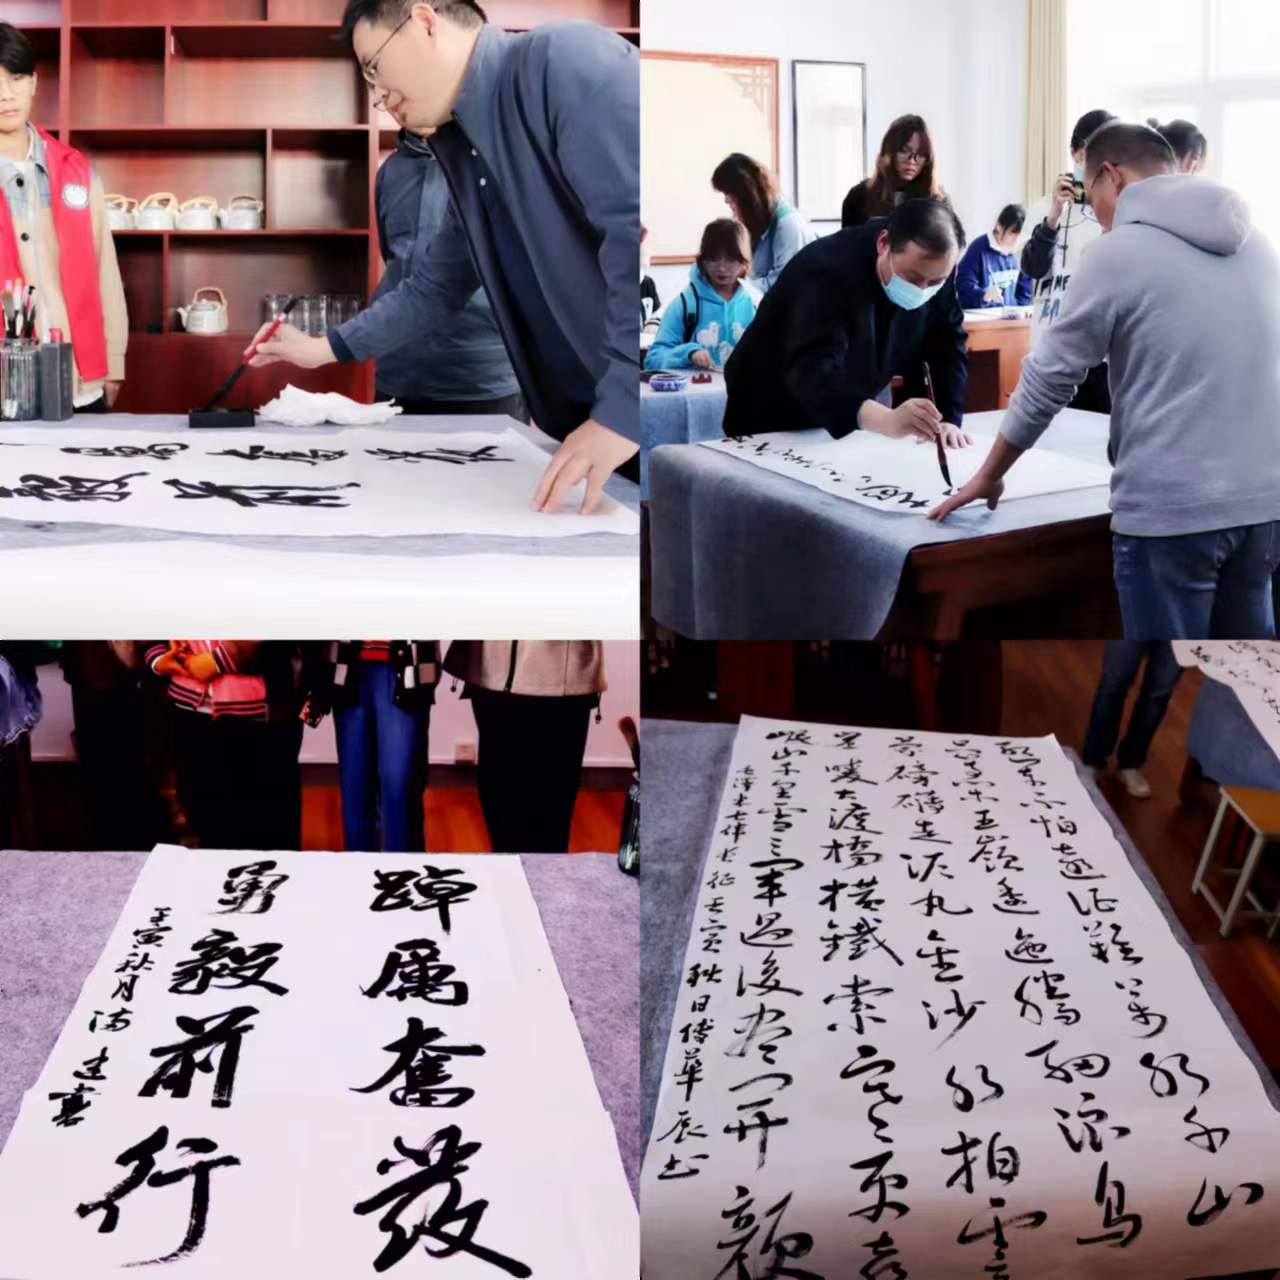 厲奮發
毅前
踔厲奮發
勇毅前行
壬寅秋月
紅軍不怕遠征難萬水千山
只等閒五嶺逶迤騰細浪烏
蒙磅礴走泥丸金沙水拍雲
崖暖大渡橋橫鐵索寒更喜
岷山千里雪三軍過後盡開顏
毛澤東七律長征壬寅秋日傅華辰书